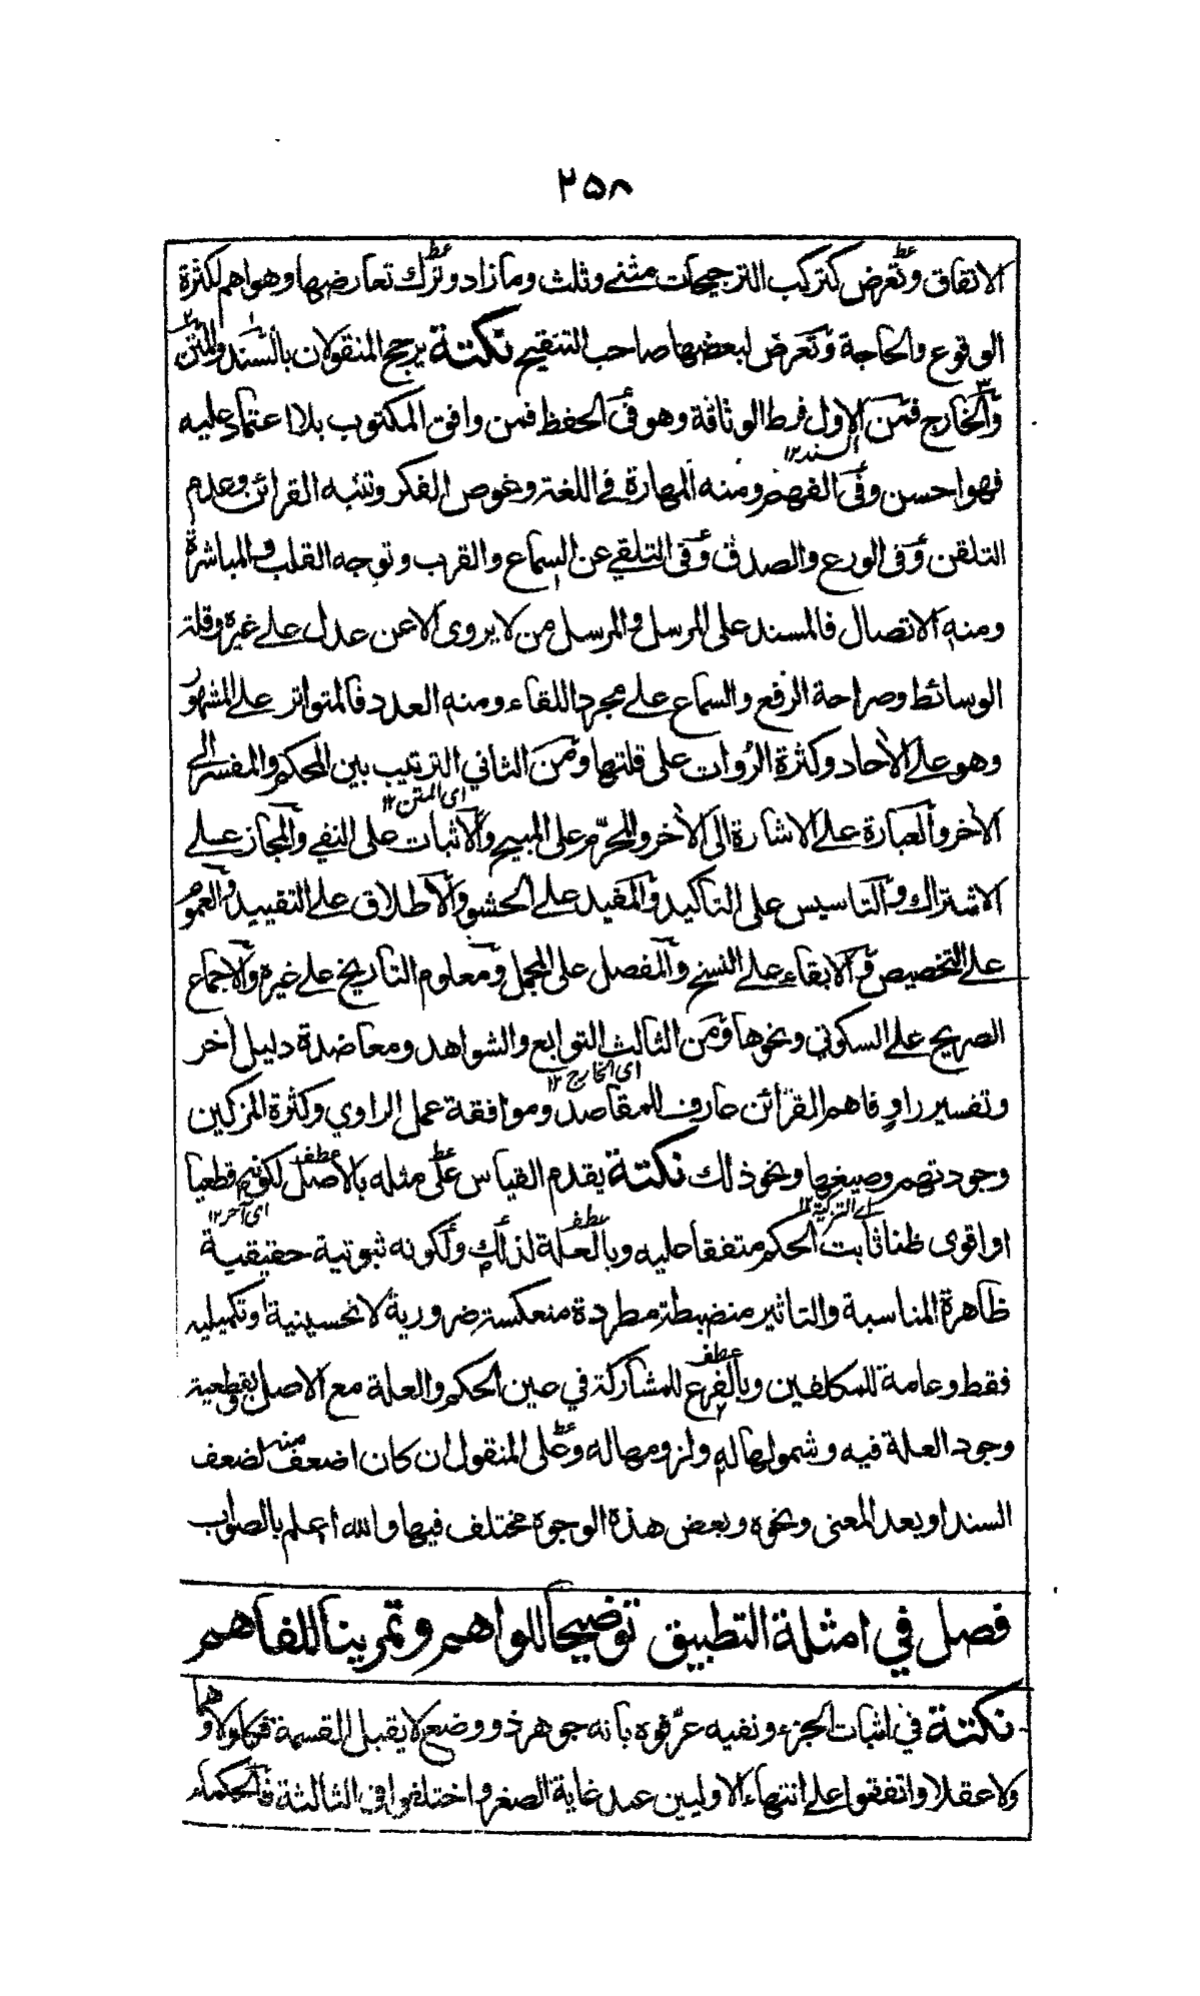 ۲۵۸
الاتفاق وتعرض كتركب الترجيحات مثنى وثلث وما زاد وترك تعارضها وهو اهم لكثرة
الوقوع والحاجة وتعرض لبعضها صاحب التنقيح نكتة يرجح المنقولان بالسند والمتن
والخارج فمن الاول فرط الوثاقة وهو فى الحفظ فمن وافق المكتوب بلا اعتماد عليه
السند١٢
فهو احسن وفى الفهم ومنه المهارة فى اللغة وغوص الفكر وتنبه القرائن وعدم
التلقن وفى الورع والصدق وفى التلقي عن السماع والقرب وتوجه القلب والمباشرة
ومنه الاتصال فالمسند على المرسل والمرسل من لا يروى الا عن عدل على غيره وقلة
الوسائط وصراحة الرفع والسماع على مجرد اللقاء ومنه العدد فالمتواتر على المشهور
وهو على الأحاد وكثرة الرُوات على قلتها ومن الثاني الترتيب بين المحكم والمفسر الى
اى المتن١٢
الأخر والعبارة على الاشارة الى الأخر والمحرّم على المبيح والاثبات على النفي والمجاز على
الاشتراك والتاسيس على التاكيد والمفيد على الحشو والاطلاق على التقييد والعموم
على التخصيص والابقاء على النسخ والمفصل على المجمل ومعلوم التاريخ على غيره والاجماع
الصريح على السكوتي ونحوها ومن الثالث التوابع والشواهد ومعاضدة دليل أخر
اى الخارج١٢
وتفسير راوٍ فاهم القرائن عارف للمقاصد وموافقة عمل الراوي وكثرة المزكين
وجودتهم وصيغها ونحو ذلك نكتة يقدم القياس على مثله بالاصل لكونه قطعيا
اى التزكية١٢ عطف اى آخر١٢
او اقوى ظنا ثابت الحكم متفقا عليه وبالعلة لذلك ولكونه ثبوتية حقيقية
ظاهرة المناسبة والتاثير منضبطة مطردة منعكسة ضرورية لا تحسينية او تكميلية
عطف
فقط وعامة للمكلفين وبالفرع للمشاركة في عين الحكم والعلة مع الاصل بقطعية
وجود العلة فيه وشمولها له ولزومها له وعلى المنقول ان كان اضعف منه لضعف
السند او بعد المعنى ونحوه وبعض هذه الوجوه مختلف فيها والله اعلم بالصواب
فصل في امثلة التطبيق توضيحا للواهم وتمرينا للفاهم
نكتة في اثبات الجزء ونفيه عرّفوه بانه جوهر ذو وضع لا يقبل القسمة فكا ولا وهما
ولا عقلا واتفقوا على انتهاء الاوليين عند غاية الصغر واختلفوا فى الثالثة فالحكماء